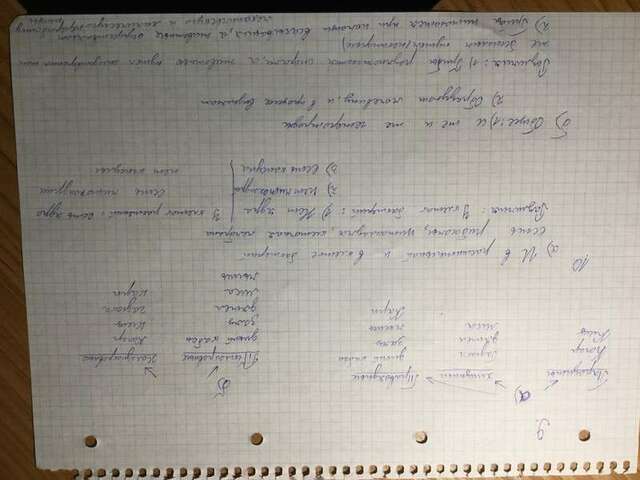 9.
а)
Паразиты хищники Травоядные
Комар гадюка дикий кабан
Клещ дятел заяц
лиса мышь
Карп
б)
Теплокровные Холоднокровные
дикий кабан Комар
заяц клещ
дятел гадюка
лиса карп
мышь
10.
а) И в растительной и в клетке бактерий
есть рибосомы, цитоплазма, клеточная мембрана
Различия: У клеток бактерий: 1) Нет ядра
2) Нет митохондрий
3) есть капсула
У клеток растений: есть ядро
есть митохондрии
нет капсулы
б) Общее: 1) и те и те гетеротрофы
2) Образуют мочевину, и в процессе выделяют
Различия: 1) Грибы размножаются спорами, а животные путем
же бесполым путем (некоторые)
2) Грибы питаются при помощи всасывания, а животные осуществляют
механическую и химическую переработку
пищи